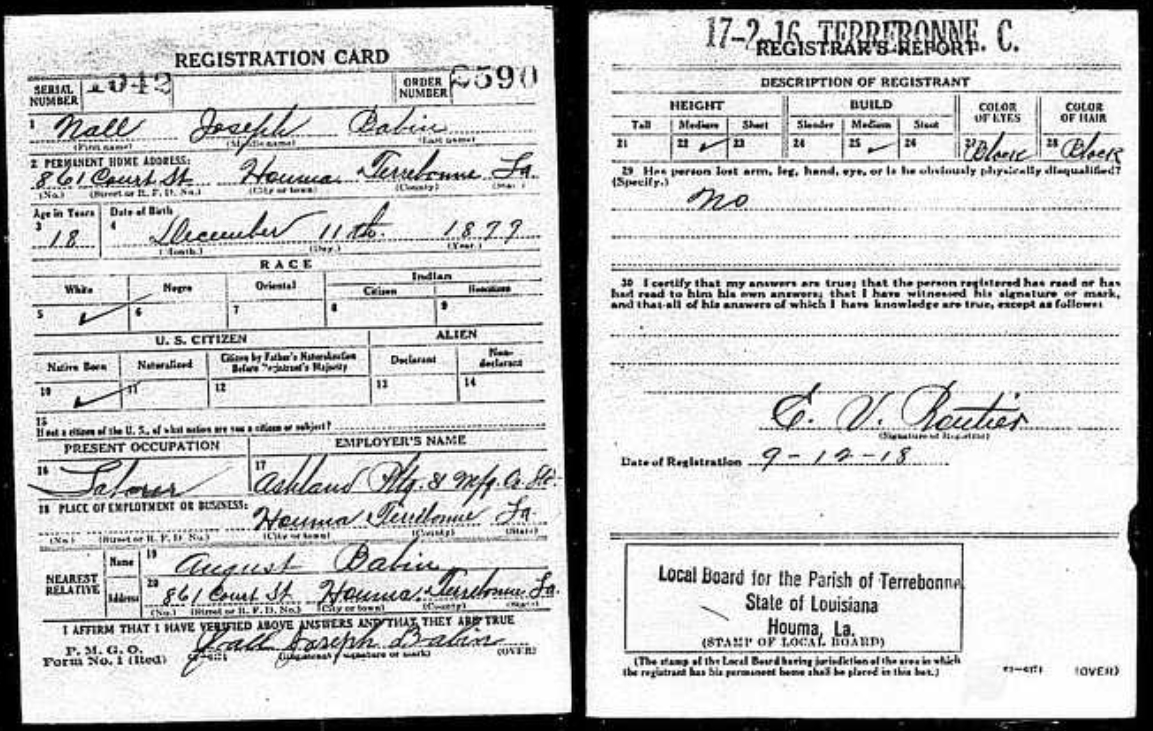 REGISTRATION CARD
SERIAL NUMBER 1042 ORDER NUMBER 2590
1 Nall Joseph Babin
(First name) (Middle name) (Last name)
2 PERMANENT HOME ADDRESS:
861 Court St Houma Terrebonne La.
(No.) (Street or R. F. D. No.) (City or town) (County) (State)
Age in Years Date of Birth
3 18 4 December 11th 1899
(Month.) (Day.) (Year.)
RACE
White Negro Oriental Indian
Citizen Noncitizen
5 ✓ 6 7 8 9
U. S. CITIZEN ALIEN
Native Born Naturalized Citizen by Father's Naturalization Before Registrant's Majority Declarant Non-declarant
10 ✓ 11 12 13 14
15
If not a citizen of the U. S., of what nation are you a citizen or subject?
PRESENT OCCUPATION EMPLOYER'S NAME
16 Laborer 17 Ashland Pltg. & Mfg. Co.
18 PLACE OF EMPLOYMENT OR BUSINESS:
Houma Terrebonne La.
(No.) (Street or R. F. D. No.) (City or town) (County) (State)
NEAREST RELATIVE Name 19 August Babin
Address 20 861 Court St Houma Terrebonne La.
(No.) (Street or R. F. D. No.) (City or town) (County) (State)
I AFFIRM THAT I HAVE VERIFIED ABOVE ANSWERS AND THAT THEY ARE TRUE
P. M. G. O.
Form No. 1 (Red) Nall Joseph Babin
(Registrant's signature or mark) (OVER)
17-2-16 TERREBONNE. C.
REGISTRAR'S REPORT
DESCRIPTION OF REGISTRANT
HEIGHT BUILD COLOR OF EYES COLOR OF HAIR
Tall Medium Short Slender Medium Stout
21 22 ✓ 23 24 25 ✓ 26 27 Black 28 Black
29 Has person lost arm, leg, hand, eye, or is he obviously physically disqualified?
(Specify.)
no
30 I certify that my answers are true; that the person registered has read or has
had read to him his own answers; that I have witnessed his signature or mark,
and that all of his answers of which I have knowledge are true, except as follows:
E. V. Routier
(Signature of Registrar)
Date of Registration 9-12-18
Local Board for the Parish of Terrebonne,
State of Louisiana
Houma, La.
(STAMP OF LOCAL BOARD)
(The stamp of the Local Board having jurisdiction of the area in which
the registrant has his permanent home shall be placed in this box.)
(OVER)